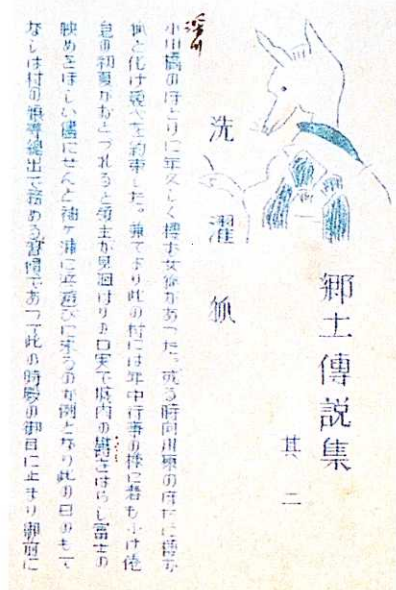 郷土傳説集
其二
洗濯狐
小川橋のほとりに年久しく棲む女狐があつた。或る時向川東のほ
狐と化け競べを約束した。兼てより此の村には年中行事の様に春もふけ倦
怠の初夏がおとづれると領主が見廻はりの口実で城内の欝さはらし富士の
眺めをほしい儘にせんと袖ケ浦に舟遊びに来るのが例となり此の日のもて
なしは村の娘等総出で務める習慣であつて此の時殿の御目に止まり御前に